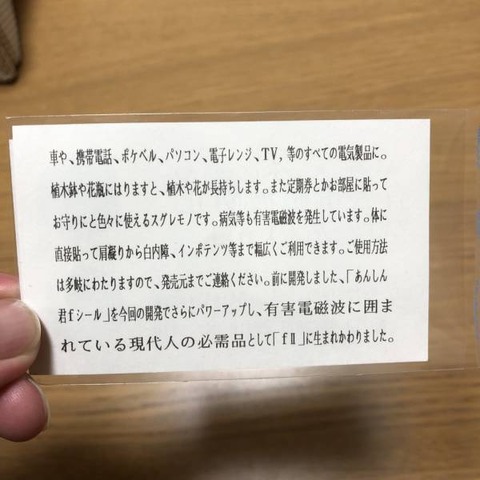 車や、携帯電話、ポケベル、パソコン、電子レンジ、TV, 等のすべての電気製品に。
植木鉢や花瓶にはりますと、植木や花が長持ちします。また定期券とかお部屋に貼って
お守りにと色々に使えるスグレモノです。病気も有害電磁波を発生しています。体に
直接貼って肩凝りから白内障、インポテンツ等まで幅広くご利用できます。ご使用方法
は多岐にわたりますので、発売元までご連絡ください。前に開発しました、「あんしん
君fシール」を今回の開発でさらにパワーアップし、有害電磁波に囲ま
れている現代人の必需品として「fⅡ」に生まれかわりました。